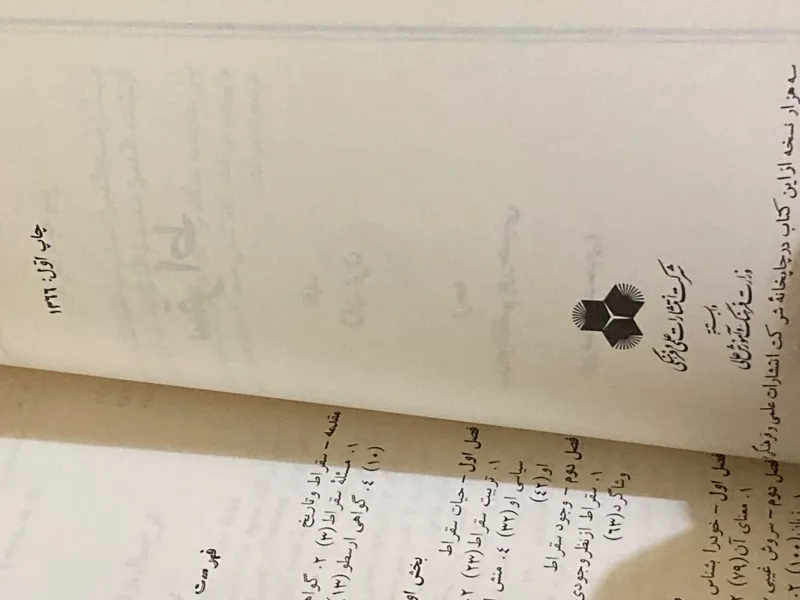 چاپ اوّل: ۱۳۶۶
شرکت انتشارات علمی و فرهنگی
وابسته به
وزارت فرهنگ و آموزش عالی
سه هزار نسخه از این کتاب در چاپخانهٔ شرکت انتشارات علمی و
فهرست
مقدمه – سقراط و تاریخ
۱. مسئلهٔ سقراط (۳) ۲.
(۱۰) ٤. گواهی ارسطو (۱۳)
بخش
فصل اول – حیات سقراط
۱. تربیت سقراط (۲۳) ۲
سیاسی او (۳۲) ٤. منش
او (٤۲)
فصل دوم – وجود سقراط
۱. سقراط از نظر وجودی
وشاگرد (٦۳)
فصل اول – خود را بشناس
۱. معنای آن (۷۹) ۲
فصل دوم – سروش غیبی
(۱۰۰) ۲.